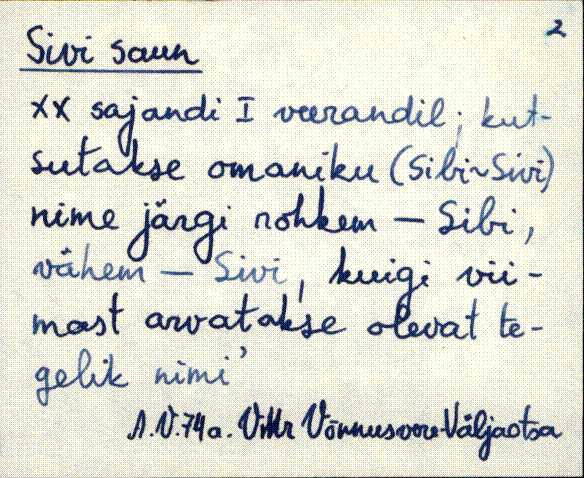 2
Sivi saun
XX sajandi I veerandil; kut-
sutakse omaniku (Sibi~Sivi)
nime järgi rohkem – Sibi,
vähem – Sivi, kuigi vii-
mast arvatakse olevat te-
gelik nimi'
A.V.74a. Võnnusvere-Väljaotsa